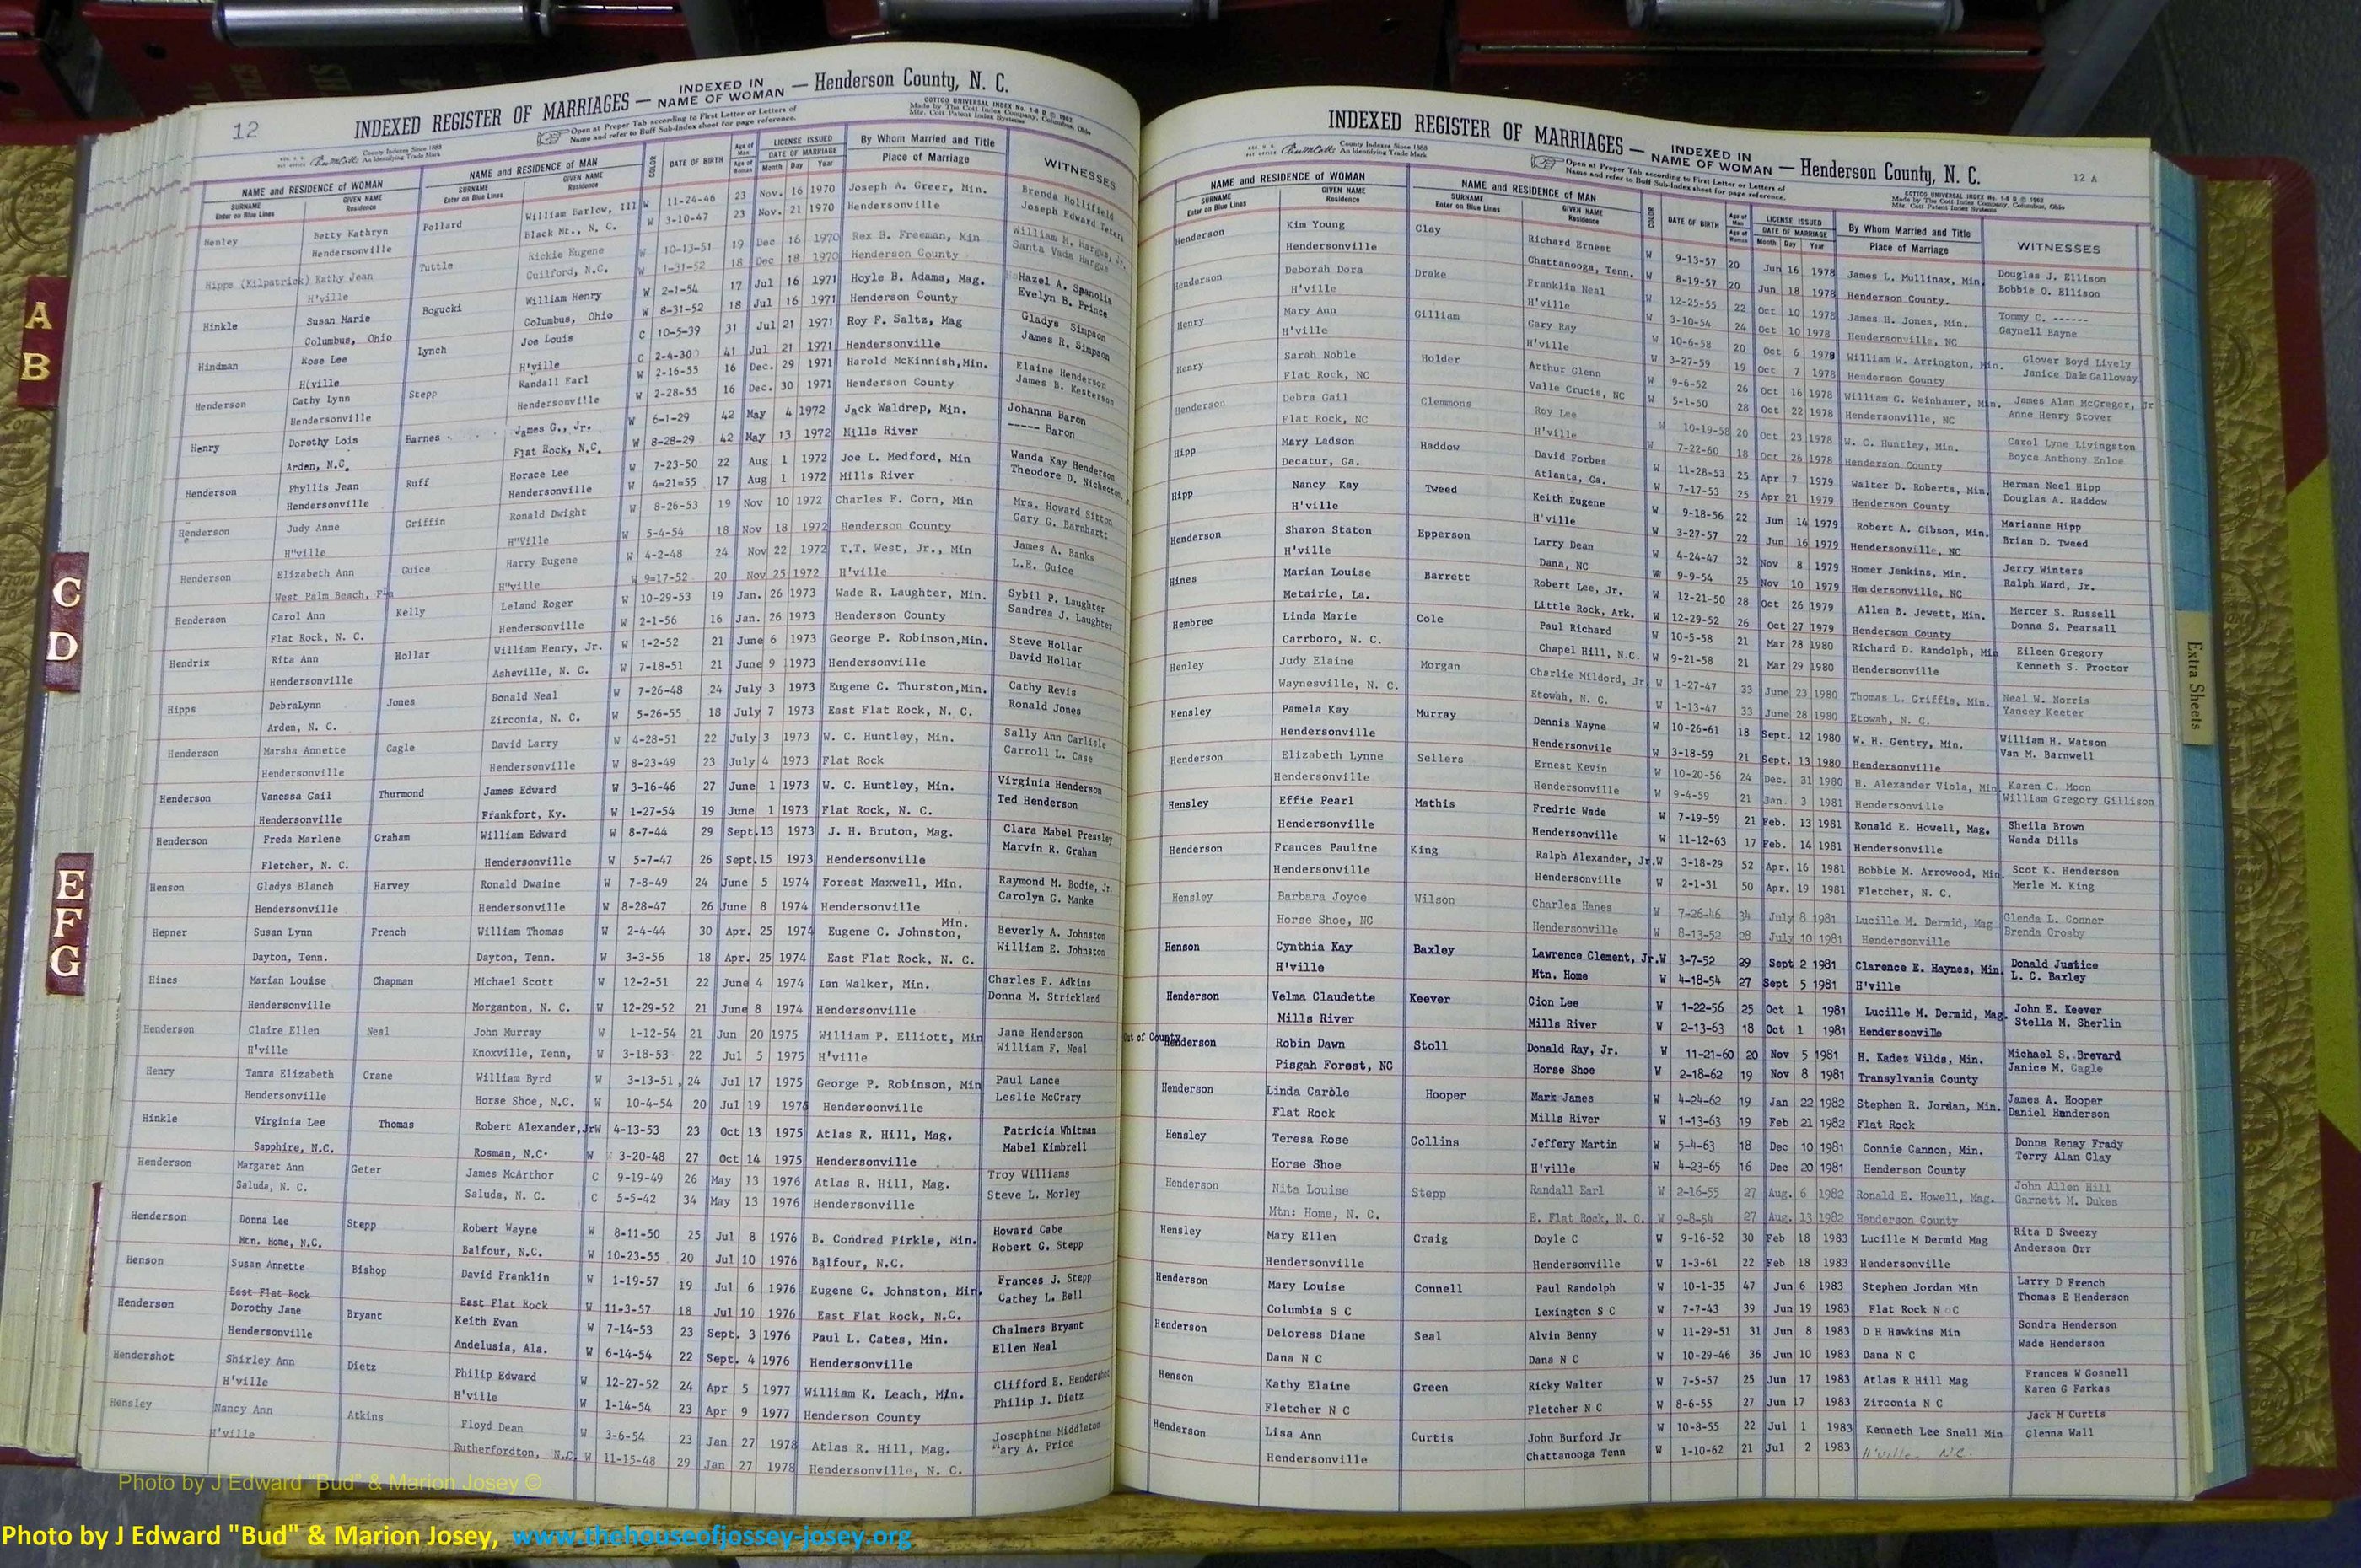 12
INDEXED REGISTER OF MARRIAGES — INDEXED IN NAME OF WOMAN — Henderson County, N. C.
Open at Proper Tab according to First Letter or Letters of
Name and refer to Buff Sub-Index sheet for page reference.
COTTCO UNIVERSAL INDEX No. 1-8 D © 1962
Made by The Cott Index Company, Columbus, Ohio
Mfg. Cott Patent Index Systems
County Indexes Since 1888
An Identifying Trade Mark
NAME and RESIDENCE OF WOMAN NAME and RESIDENCE OF MAN COLOR DATE OF BIRTH Age of Man Age of Woman LICENSE ISSUED DATE OF MARRIAGE By Whom Married and Title WITNESSES
SURNAME Enter on Blue Lines GIVEN NAME Residence SURNAME Enter on Blue Lines GIVEN NAME Residence Month Day Year Place of Marriage
Henley Betty Kathryn Pollard William Barlow, III W 11-24-46 23 Nov. 16 1970 Joseph A. Greer, Min. Brenda Hollifield
Hendersonville Black Mt., N. C. W 3-10-47 23 Nov. 21 1970 Hendersonville Joseph Edward Teters
Hipps (Kilpatrick) Kathy Jean Tuttle Rickie Eugene W 10-13-51 19 Dec 16 1970 Rex B. Freeman, Min William M. Hargus, Jr.
H'ville Guilford, N.C. W 1-31-52 18 Dec 18 1970 Henderson County Santa Vada Hargus
Hinkle Susan Marie Bogucki William Henry W 2-1-54 17 Jul 16 1971 Hoyle B. Adams, Mag. Hazel A. Spanolia
Columbus, Ohio Columbus, Ohio W 8-31-52 18 Jul 16 1971 Henderson County Evelyn B. Prince
Hindman Rose Lee Lynch Joe Louis C 10-5-39 31 Jul 21 1971 Roy F. Saltz, Mag Gladys Simpson
H(ville H'ville C 2-4-30 41 Jul 21 1971 Hendersonville James R. Simpson
Henderson Cathy Lynn Stepp Randall Earl W 2-16-55 16 Dec. 29 1971 Harold McKinnish,Min. Elaine Henderson
Hendersonville Hendersonville W 2-28-55 16 Dec. 30 1971 Henderson County James B. Kesterson
Henry Dorothy Lois Barnes James G., Jr. W 6-1-29 42 May 4 1972 Jack Waldrep, Min. Johanna Baron
Arden, N.C. Flat Rock, N.C. W 8-28-29 42 May 13 1972 Mills River ----- Baron
Henderson Phyllis Jean Ruff Horace Lee W 7-23-50 22 Aug 1 1972 Joe L. Medford, Min Wanda Kay Henderson
Hendersonville Hendersonville W 4=21=55 17 Aug 1 1972 Mills River Theodore D. Nicheston,
Henderson Judy Anne Griffin Ronald Dwight W 8-26-53 19 Nov 10 1972 Charles F. Corn, Min Mrs. Howard Sitton
H"ville H"Ville W 5-4-54 18 Nov 18 1972 Henderson County Gary G. Barnhartt
Henderson Elizabeth Ann Guice Harry Eugene W 4-2-48 24 Nov 22 1972 T.T. West, Jr., Min James A. Banks
West Palm Beach, Fla H"ville W 9=17-52 20 Nov 25 1972 H'ville L.E. Guice
Henderson Carol Ann Kelly Leland Roger W 10-29-53 19 Jan. 26 1973 Wade R. Laughter, Min. Sybil P. Laughter
Flat Rock, N. C. Hendersonville W 2-1-56 16 Jan. 26 1973 Henderson County Sandrea J. Laughter
Hendrix Rita Ann Hollar William Henry, Jr. W 1-2-52 21 June 6 1973 George P. Robinson,Min. Steve Hollar
Hendersonville Asheville, N. C. W 7-18-51 21 June 9 1973 Hendersonville David Hollar
Hipps DebraLynn Jones Donald Neal W 7-26-48 24 July 3 1973 Eugene C. Thurston,Min. Cathy Revis
Arden, N. C. Zirconia, N. C. W 5-26-55 18 July 7 1973 East Flat Rock, N. C. Ronald Jones
Henderson Marsha Annette Cagle David Larry W 4-28-51 22 July 3 1973 W. C. Huntley, Min. Sally Ann Carlisle
Hendersonville Hendersonville W 8-23-49 23 July 4 1973 Flat Rock Carroll L. Case
Henderson Vanessa Gail Thurmond James Edward W 3-16-46 27 June 1 1973 W. C. Huntley, Min. Virginia Henderson
Hendersonville Frankfort, Ky. W 1-27-54 19 June 1 1973 Flat Rock, N. C. Ted Henderson
Henderson Freda Marlene Graham William Edward W 8-7-44 29 Sept.13 1973 J. H. Bruton, Mag. Clara Mabel Pressley
Fletcher, N. C. Hendersonville W 5-7-47 26 Sept.15 1973 Hendersonville Marvin R. Graham
Henson Gladys Blanch Harvey Ronald Dwaine W 7-8-49 24 June 5 1974 Forest Maxwell, Min. Raymond M. Bodie, Jr.
Hendersonville Hendersonville W 8-28-47 26 June 8 1974 Hendersonville Carolyn G. Manke
Hepner Susan Lynn French William Thomas W 2-4-44 30 Apr. 25 1974 Eugene C. Johnston, Min. Beverly A. Johnston
Dayton, Tenn. Dayton, Tenn. W 3-3-56 18 Apr. 25 1974 East Flat Rock, N. C. William E. Johnston
Hines Marian Louise Chapman Michael Scott W 12-2-51 22 June 4 1974 Ian Walker, Min. Charles F. Adkins
Hendersonville Morganton, N. C. W 12-29-52 21 June 8 1974 Hendersonville Donna M. Strickland
Henderson Claire Ellen Neal John Murray W 1-12-54 21 Jun 20 1975 William P. Elliott, Min Jane Henderson
H'ville Knoxville, Tenn, W 3-18-53 22 Jul 5 1975 H'ville William F. Neal
Henry Tamra Elizabeth Crane William Byrd W 3-13-51, 24 Jul 17 1975 George P. Robinson, Min Paul Lance
Hendersonville Horse Shoe, N.C. W 10-4-54 20 Jul 19 1975 Hendersonville Leslie McCrary
Hinkle Virginia Lee Thomas Robert Alexander,Jr W 4-13-53 23 Oct 13 1975 Atlas R. Hill, Mag. Patricia Whitman
Sapphire, N.C. Rosman, N.C. W 3-20-48 27 Oct 14 1975 Hendersonville Mabel Kimbrell
Henderson Margaret Ann Geter James McArthor C 9-19-49 26 May 13 1976 Atlas R. Hill, Mag. Troy Williams
Saluda, N. C. Saluda, N. C. C 5-5-42 34 May 13 1976 Hendersonville Steve L. Morley
Henderson Donna Lee Stepp Robert Wayne W 8-11-50 25 Jul 8 1976 B. Condred Pirkle, Min. Howard Cabe
Mtn. Home, N.C. Balfour, N.C. W 10-23-55 20 Jul 10 1976 Balfour, N.C. Robert G. Stepp
Henson Susan Annette Bishop David Franklin W 1-19-57 19 Jul 6 1976 Eugene C. Johnston, Min. Frances J. Stepp
East Flat Rock East Flat Rock W 11-3-57 18 Jul 10 1976 East Flat Rock, N.C. Cathey L. Bell
Henderson Dorothy Jane Bryant Keith Evan W 7-14-53 23 Sept. 3 1976 Paul L. Cates, Min. Chalmers Bryant
Hendersonville Andelusia, Ala. W 6-14-54 22 Sept. 4 1976 Hendersonville Ellen Neal
Hendershot Shirley Ann Dietz Philip Edward W 12-27-52 24 Apr 5 1977 William K. Leach, Min. Clifford E. Hendershot
H'ville H'ville W 1-14-54 23 Apr 9 1977 Henderson County Philip J. Dietz
Hensley Nancy Ann Atkins Floyd Dean W 3-6-54 23 Jan 27 1978 Atlas R. Hill, Mag. Josephine Middleton
H'ville Rutherfordton, N.C. W 11-15-48 29 Jan 27 1978 Hendersonville, N. C. Mary A. Price
INDEXED REGISTER OF MARRIAGES — INDEXED IN NAME OF WOMAN — Henderson County, N. C.
12 A
County Indexes Since 1888
An Identifying Trade Mark
Open at Proper Tab according to First Letter or Letters of
Name and refer to Buff Sub-Index sheet for page reference.
COTTCO UNIVERSAL INDEX No. 1-8 D © 1962
Made by The Cott Index Company, Columbus, Ohio
Mfg. Cott Patent Index Systems
NAME and RESIDENCE OF WOMAN NAME and RESIDENCE OF MAN COLOR DATE OF BIRTH Age of Man Age of Woman LICENSE ISSUED DATE OF MARRIAGE By Whom Married and Title WITNESSES
SURNAME Enter on Blue Lines GIVEN NAME Residence SURNAME Enter on Blue Lines GIVEN NAME Residence Month Day Year Place of Marriage
Henderson Kim Young Clay Richard Ernest W 9-13-57 20 Jun 16 1978 James L. Mullinax, Min. Douglas J. Ellison
Hendersonville Chattanooga, Tenn. W 8-19-57 20 Jun 18 1978 Henderson County. Bobbie O. Ellison
Henderson Deborah Dora Drake Franklin Neal W 12-25-55 22 Oct 10 1978 James H. Jones, Min. Tommy C. ------
H'ville H'ville W 3-10-54 24 Oct 10 1978 Hendersonville, NC Gaynell Bayne
Henry Mary Ann Gilliam Gary Ray W 10-6-58 20 Oct 6 1978 William W. Arrington, Min. Glover Boyd Lively
H'ville H'ville W 3-27-59 19 Oct 7 1978 Henderson County Janice Dale Galloway
Henry Sarah Noble Holder Arthur Glenn W 9-6-52 26 Oct 16 1978 William G. Weinhauer, Min. James Alan McGregor, Jr
Flat Rock, NC Valle Crucis, NC W 5-1-50 28 Oct 22 1978 Hendersonville, NC Anne Henry Stover
Henderson Debra Gail Clemmons Roy Lee W 10-19-58 20 Oct 23 1978 W. C. Huntley, Min. Carol Lyne Livingston
Flat Rock, NC H'ville W 7-22-60 18 Oct 26 1978 Henderson County Boyce Anthony Enloe
Hipp Mary Ladson Haddow David Forbes W 11-28-53 25 Apr 7 1979 Walter D. Roberts, Min. Herman Neel Hipp
Decatur, Ga. Atlanta, Ga. W 7-17-53 25 Apr 21 1979 Henderson County Douglas A. Haddow
Hipp Nancy Kay Tweed Keith Eugene W 9-18-56 22 Jun 14 1979 Robert A. Gibson, Min. Marianne Hipp
H'ville H'ville W 3-27-57 22 Jun 16 1979 Hendersonville, NC Brian D. Tweed
Henderson Sharon Staton Epperson Larry Dean W 4-24-47 32 Nov 8 1979 Homer Jenkins, Min. Jerry Winters
H'ville Dana, NC W 9-9-54 25 Nov 10 1979 Hendersonville, NC Ralph Ward, Jr.
Hines Marian Louise Barrett Robert Lee, Jr. W 12-21-50 28 Oct 26 1979 Allen B. Jewett, Min. Mercer S. Russell
Metairie, La. Little Rock, Ark. W 12-29-52 26 Oct 27 1979 Henderson County Donna S. Pearsall
Hembree Linda Marie Cole Paul Richard W 10-5-58 21 Mar 28 1980 Richard D. Randolph, Min Eileen Gregory
Carrboro, N. C. Chapel Hill, N.C. W 9-21-58 21 Mar 29 1980 Hendersonville Kenneth S. Proctor
Henley Judy Elaine Morgan Charlie Mildord, Jr. W 1-27-47 33 June 23 1980 Thomas L. Griffis, Min. Neal W. Norris
Waynesville, N. C. Etowah, N. C. W 1-13-47 33 June 28 1980 Etowah, N. C. Yancey Keeter
Hensley Pamela Kay Murray Dennis Wayne W 10-26-61 18 Sept. 12 1980 W. H. Gentry, Min. William H. Watson
Hendersonville Hendersonvile W 3-18-59 21 Sept. 13 1980 Hendersonville Van M. Barnwell
Henderson Elizabeth Lynne Sellers Ernest Kevin W 10-20-56 24 Dec. 31 1980 H. Alexander Viola, Min. Karen C. Moon
Hendersonville Hendersonville W 9-4-59 21 Jan. 3 1981 Hendersonville William Gregory Gillison
Hensley Effie Pearl Mathis Fredric Wade W 7-19-59 21 Feb. 13 1981 Ronald E. Howell, Mag. Sheila Brown
Hendersonville Hendersonville W 11-12-63 17 Feb. 14 1981 Hendersonville Wanda Dills
Henderson Frances Pauline King Ralph Alexander, Jr. W 3-18-29 52 Apr. 16 1981 Bobbie M. Arrowood, Min. Scot K. Henderson
Hendersonville Hendersonville W 2-1-31 50 Apr. 19 1981 Fletcher, N. C. Merle M. King
Hensley Barbara Joyce Wilson Charles Hanes W 7-26-46 34 July 8 1981 Lucille M. Dermid, Mag Glenda L. Conner
Horse Shoe, NC Hendersonville W 8-13-52 28 July 10 1981 Hendersonville Brenda Crosby
Henson Cynthia Kay Baxley Lawrence Clement, Jr. W 3-7-52 29 Sept 2 1981 Clarence E. Haynes, Min. Donald Justice
H'ville Mtn. Home W 4-18-54 27 Sept 5 1981 H'ville L. C. Baxley
Henderson Velma Claudette Keever Cion Lee W 1-22-56 25 Oct 1 1981 Lucille M. Dermid, Mag. John E. Keever
Mills River Mills River W 2-13-63 18 Oct 1 1981 Hendersonville Stella M. Sherlin
Out of County Henderson Robin Dawn Stoll Donald Ray, Jr. W 11-21-60 20 Nov 5 1981 H. Kadez Wilds, Min. Michael S. Brevard
Pisgah Forest, NC Horse Shoe W 2-18-62 19 Nov 8 1981 Transylvania County Janice M. Cagle
Henderson Linda Carole Hooper Mark James W 4-24-62 19 Jan 22 1982 Stephen R. Jordan, Min. James A. Hooper
Flat Rock Mills River W 1-13-63 19 Feb 21 1982 Flat Rock Daniel Henderson
Hensley Teresa Rose Collins Jeffery Martin W 5-4-63 18 Dec 10 1981 Connie Cannon, Min. Donna Renay Frady
Horse Shoe H'ville W 4-23-65 16 Dec 20 1981 Henderson County Terry Alan Clay
Henderson Nita Louise Stepp Randall Earl W 2-16-55 27 Aug. 6 1982 Ronald E. Howell, Mag. John Allen Hill
Mtn: Home, N. C. E. Flat Rock, N. C. W 9-8-54 27 Aug. 13 1982 Henderson County Garnett M. Dukes
Hensley Mary Ellen Craig Doyle C W 9-16-52 30 Feb 18 1983 Lucille M Dermid Mag Rita D Sweezy
Hendersonville Hendersonville W 1-3-61 22 Feb 18 1983 Hendersonville Anderson Orr
Henderson Mary Louise Connell Paul Randolph W 10-1-35 47 Jun 6 1983 Stephen Jordan Min Larry D French
Columbia S C Lexington S C W 7-7-43 39 Jun 19 1983 Flat Rock N C Thomas E Henderson
Henderson Deloress Diane Seal Alvin Benny W 11-29-51 31 Jun 8 1983 D H Hawkins Min Sondra Henderson
Dana N C Dana N C W 10-29-46 36 Jun 10 1983 Dana N C Wade Henderson
Henson Kathy Elaine Green Ricky Walter W 7-5-57 25 Jun 17 1983 Atlas R Hill Mag Frances W Gosnell
Fletcher N C Fletcher N C W 8-6-55 27 Jun 17 1983 Zirconia N C Karen G Farkas
Henderson Lisa Ann Curtis John Burford Jr W 10-8-55 22 Jul 1 1983 Kenneth Lee Snell Min Jack M Curtis
Hendersonville Chattanooga Tenn W 1-10-62 21 Jul 2 1983 H'ville. N.C. Glenna Wall
A
B
C
D
E
F
G
Extra Sheets
Photo by J Edward "Bud" & Marion Josey ©
Photo by J Edward "Bud" & Marion Josey, www.thehouseofjossey-josey.org